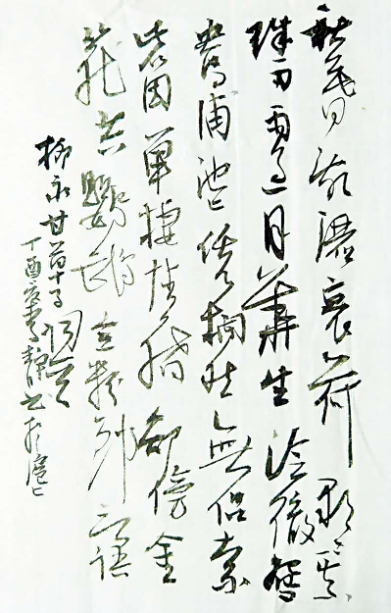 秋暮亂灑衰荷顆顆真
珠雨雨過月華生冷徹鴛
鴦浦池上凭闌愁無侶奈
此個單棲情緒卻傍金
籠共鸚鵡念粉郎言語
柳永甘草子
丁酉靜书於滬上